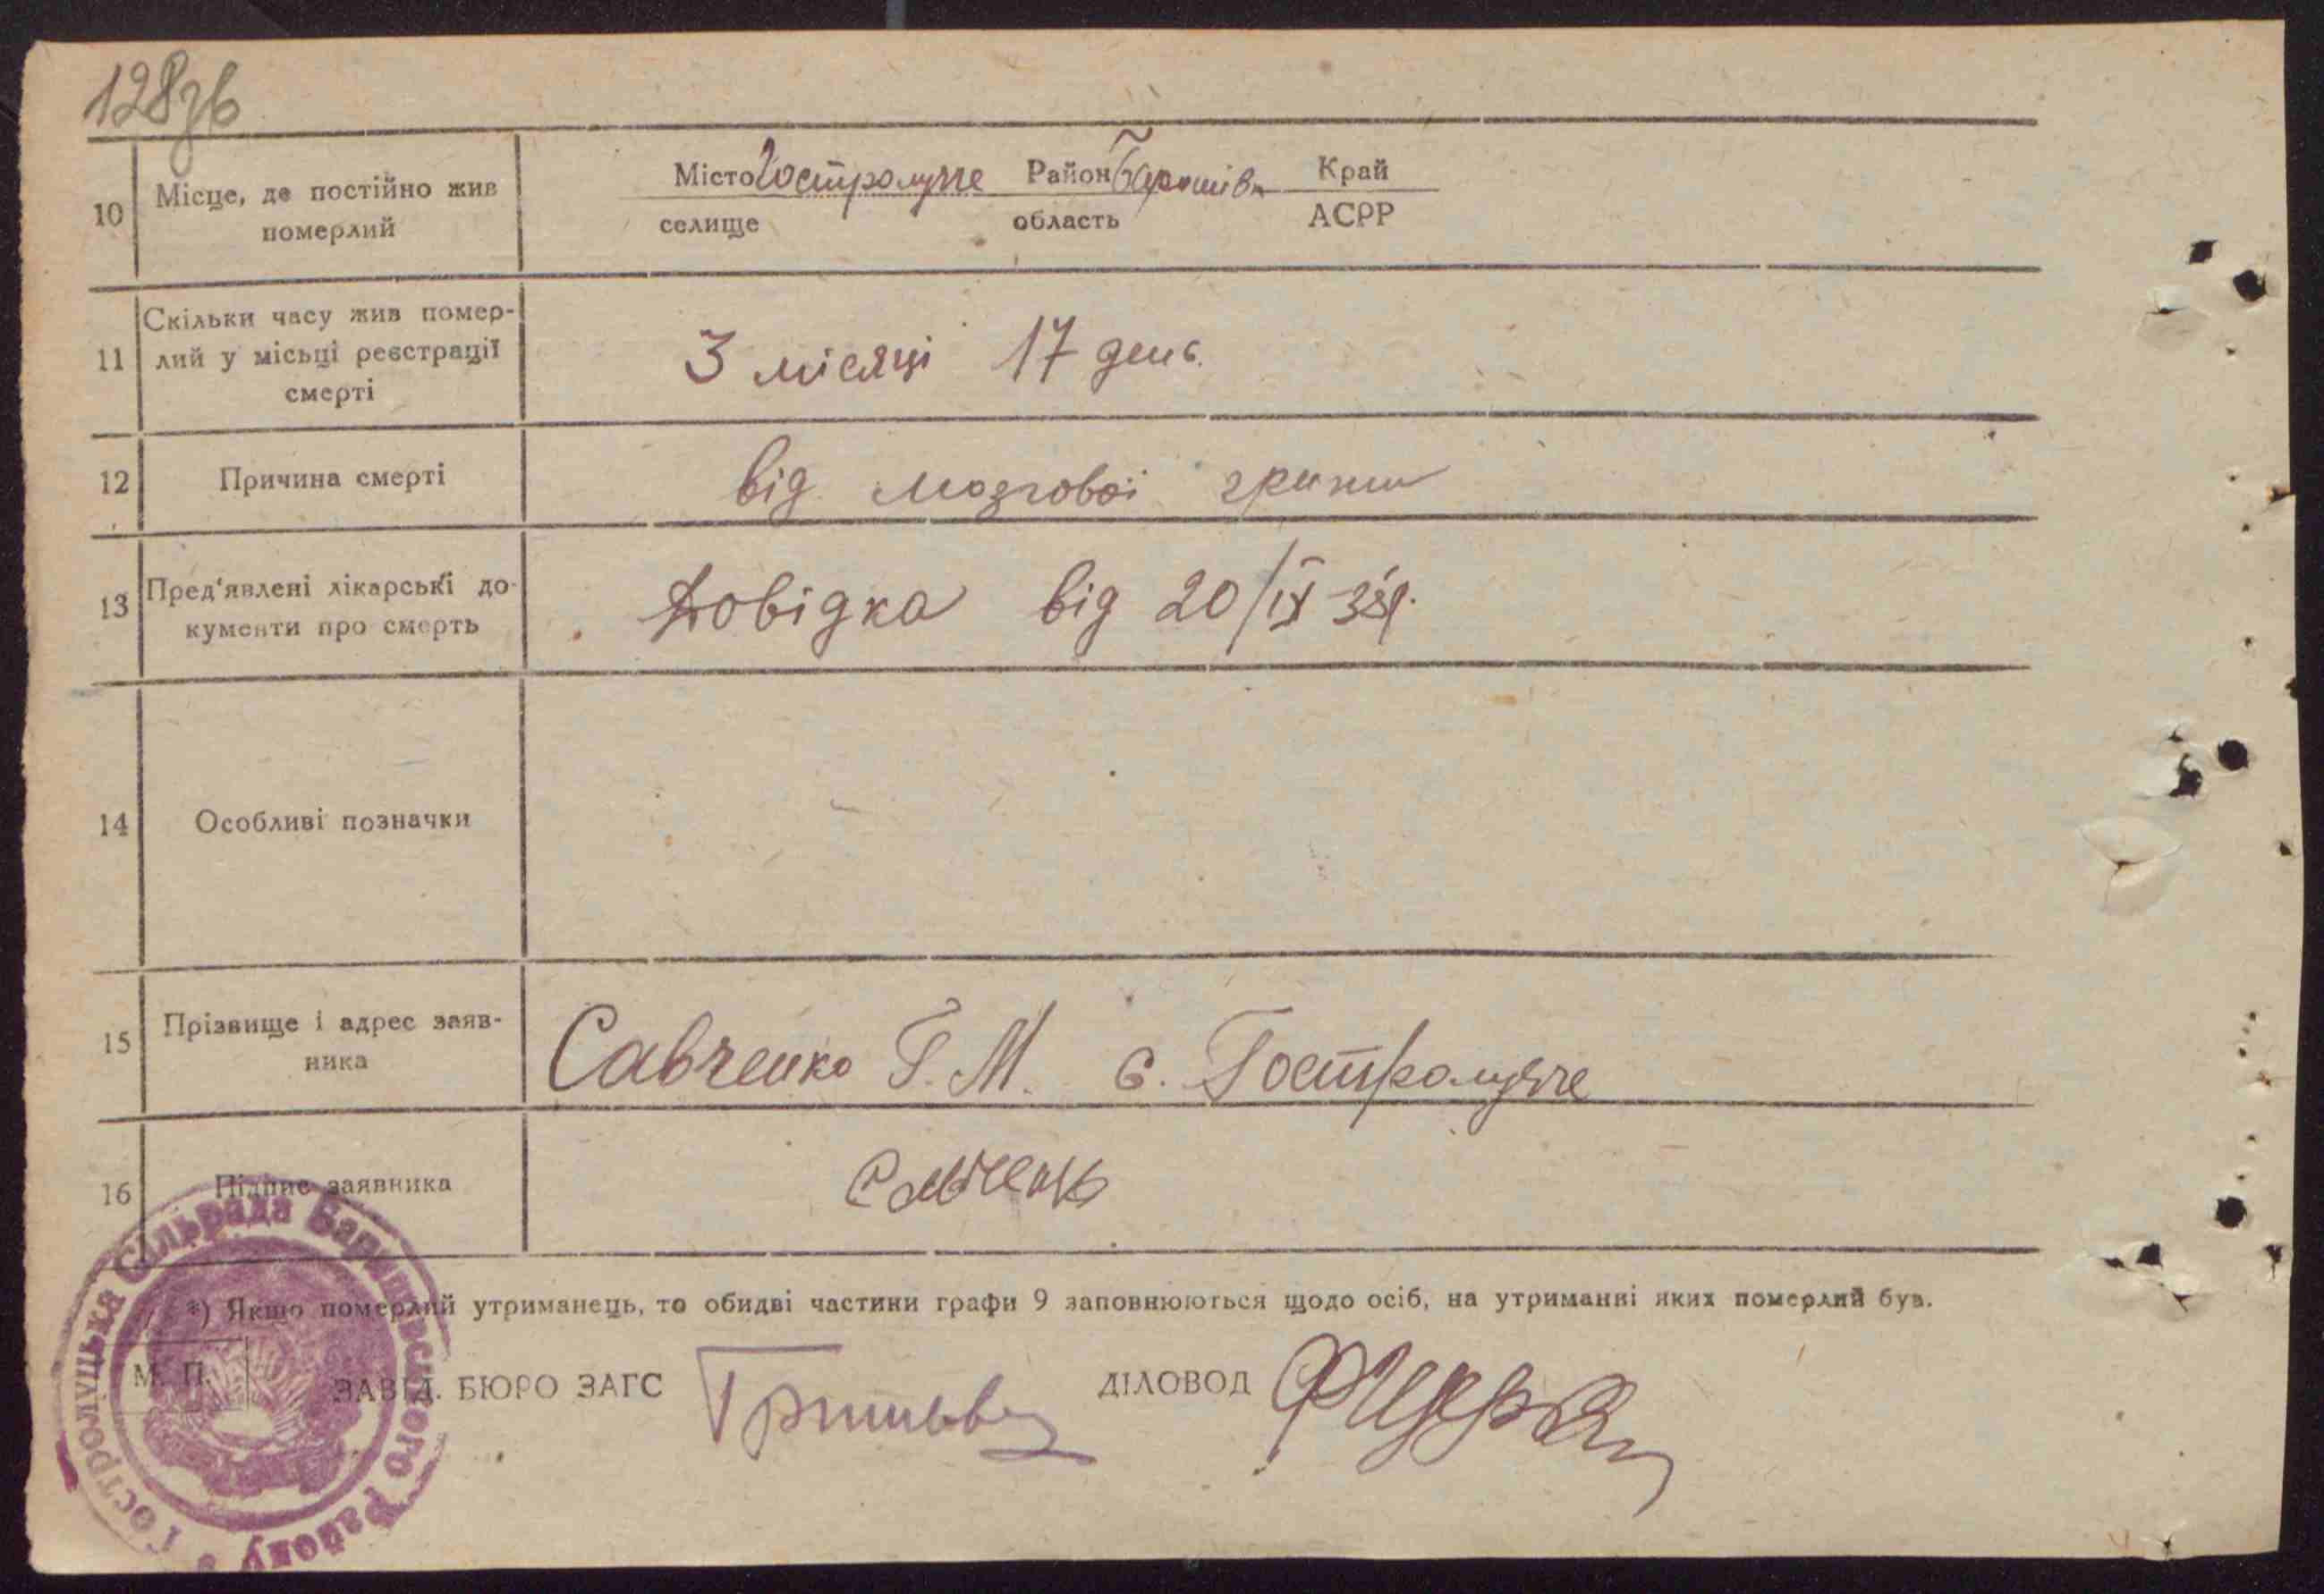 128зв
10 Місце, де постійно жив померлий
Місто Гостролуччя Район Баришівк Край
селище область АСРР
11 Скільки часу жив помер-
лий у місьці реєстрації
смерті
3 місяці 17 день.
12 Причина смерті
від мозгової грижи
13 Пред'явлені лікарські до-
кументи про смерть
Довідка від 20/IX
14 Особливі позначки
15 Прізвище і адрес заяв-
ника
Савченко Г. М. с. Гостролучче
16 Підпис заявника
Савченко
*) Якщо померлий утриманець, то обидві частини графи 9 заповнюються щодо осіб, на утриманні яких померлий був.
М. П.
ЗАВІД. БЮРО ЗАГС
ДІЛОВОД
Гостролуцька Сільрада Баришівського Району